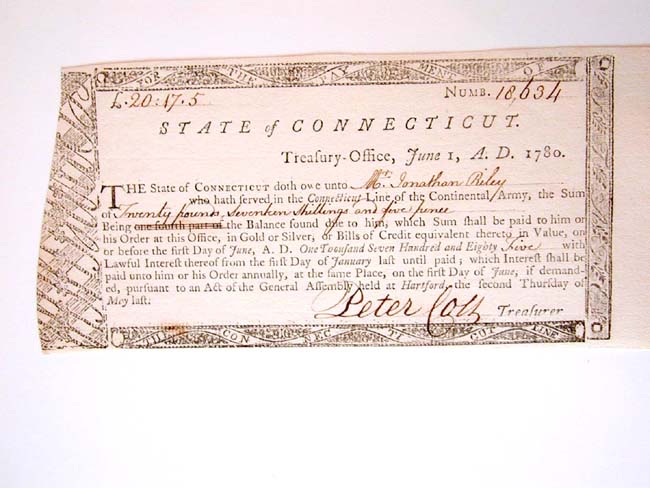 FOR THE PAY MENT OF
£.20:17.5 NUMB. 18,634
STATE of CONNECTICUT.
Treasury-Office, June 1, A. D. 1780.
THE State of CONNECTICUT doth owe unto Mr. Jonathan Riley
who hath served in the Connecticut Line of the Continental Army, the Sum
of Twenty pounds, Seventeen Shillings and five pence
Being one fourth part of the Balance found due to him; which Sum shall be paid to him or
his Order at this Office, in Gold or Silver, or Bills of Credit equivalent thereto in Value, on
or before the first Day of June, A. D. One Thousand Seven Hundred and Eighty Five with
Lawful Interest thereof from the first Day of January last until paid; which Interest shall be
paid unto him or his Order annually, at the same Place, on the first Day of June, if demand-
ed, pursuant to an Act of the General Assembly held at Hartford, the second Thursday of
May last.
Peter Colt Treasurer
THE CON NEC TI CUT LINE